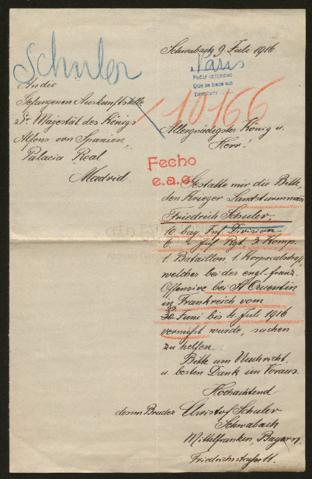 Schuler
Schwabach 9 Juli 1916
Paris
An die
Gefangenen Auskunftstelle
Sr Magestät des Königs
Alfons von Spanien
Palacia Real
Madrid
10166
Allergnädigster König u.
Herr!
Fecho
e.a.e.
Gestatte mir die Bitte,
den Krieger Landsturmmann
Friedrich Schuler,
10 bay. Inf. Division
Inf. Rgt. 3 Komp.
1 Bataillon 1 Korporalschaft
welcher bei der engl. franz.
Offensive bei St Quentin
in Frankreich vom
30 Juni bis 4 Juli 1916
vermißt wurde, suchen
zu helfen.
Bitte um Nachricht
u. besten Dank im Voraus.
Hochachtend
dessen Bruder Christof Schuler
Schwabach
Mittelfranken, Bayern